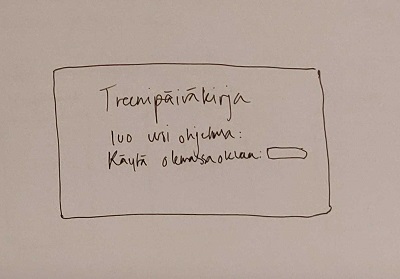 Treenipäiväkirja
luo uusi ohjelma:
Käytä olemassaolevaa: